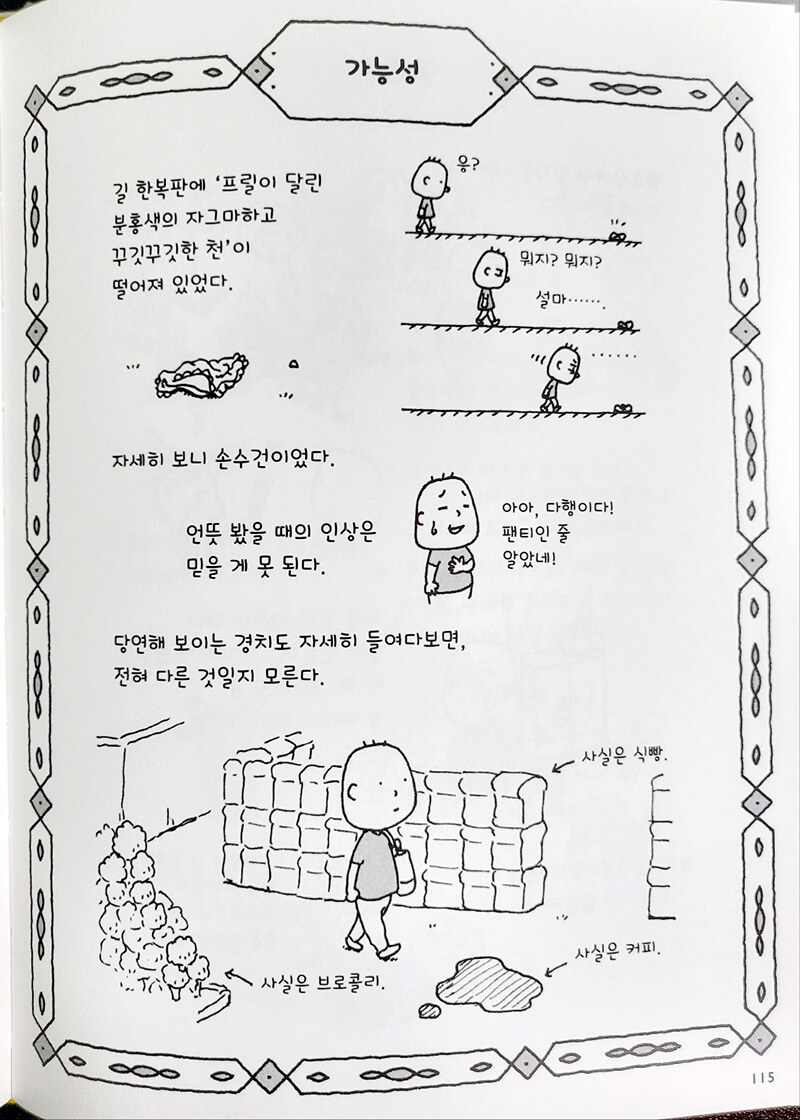 가능성
길 한복판에 '프릴이 달린
분홍색의 자그마하고
꾸깃꾸깃한 천'이
떨어져 있었다.
응?
뭐지? 뭐지?
설마…….
……
자세히 보니 손수건이었다.
언뜻 봤을 때의 인상은
믿을 게 못 된다.
아아, 다행이다!
팬티인 줄
알았네!
당연해 보이는 경치도 자세히 들여다보면,
전혀 다른 것일지 모른다.
사실은 식빵.
사실은 커피.
사실은 브로콜리.
115